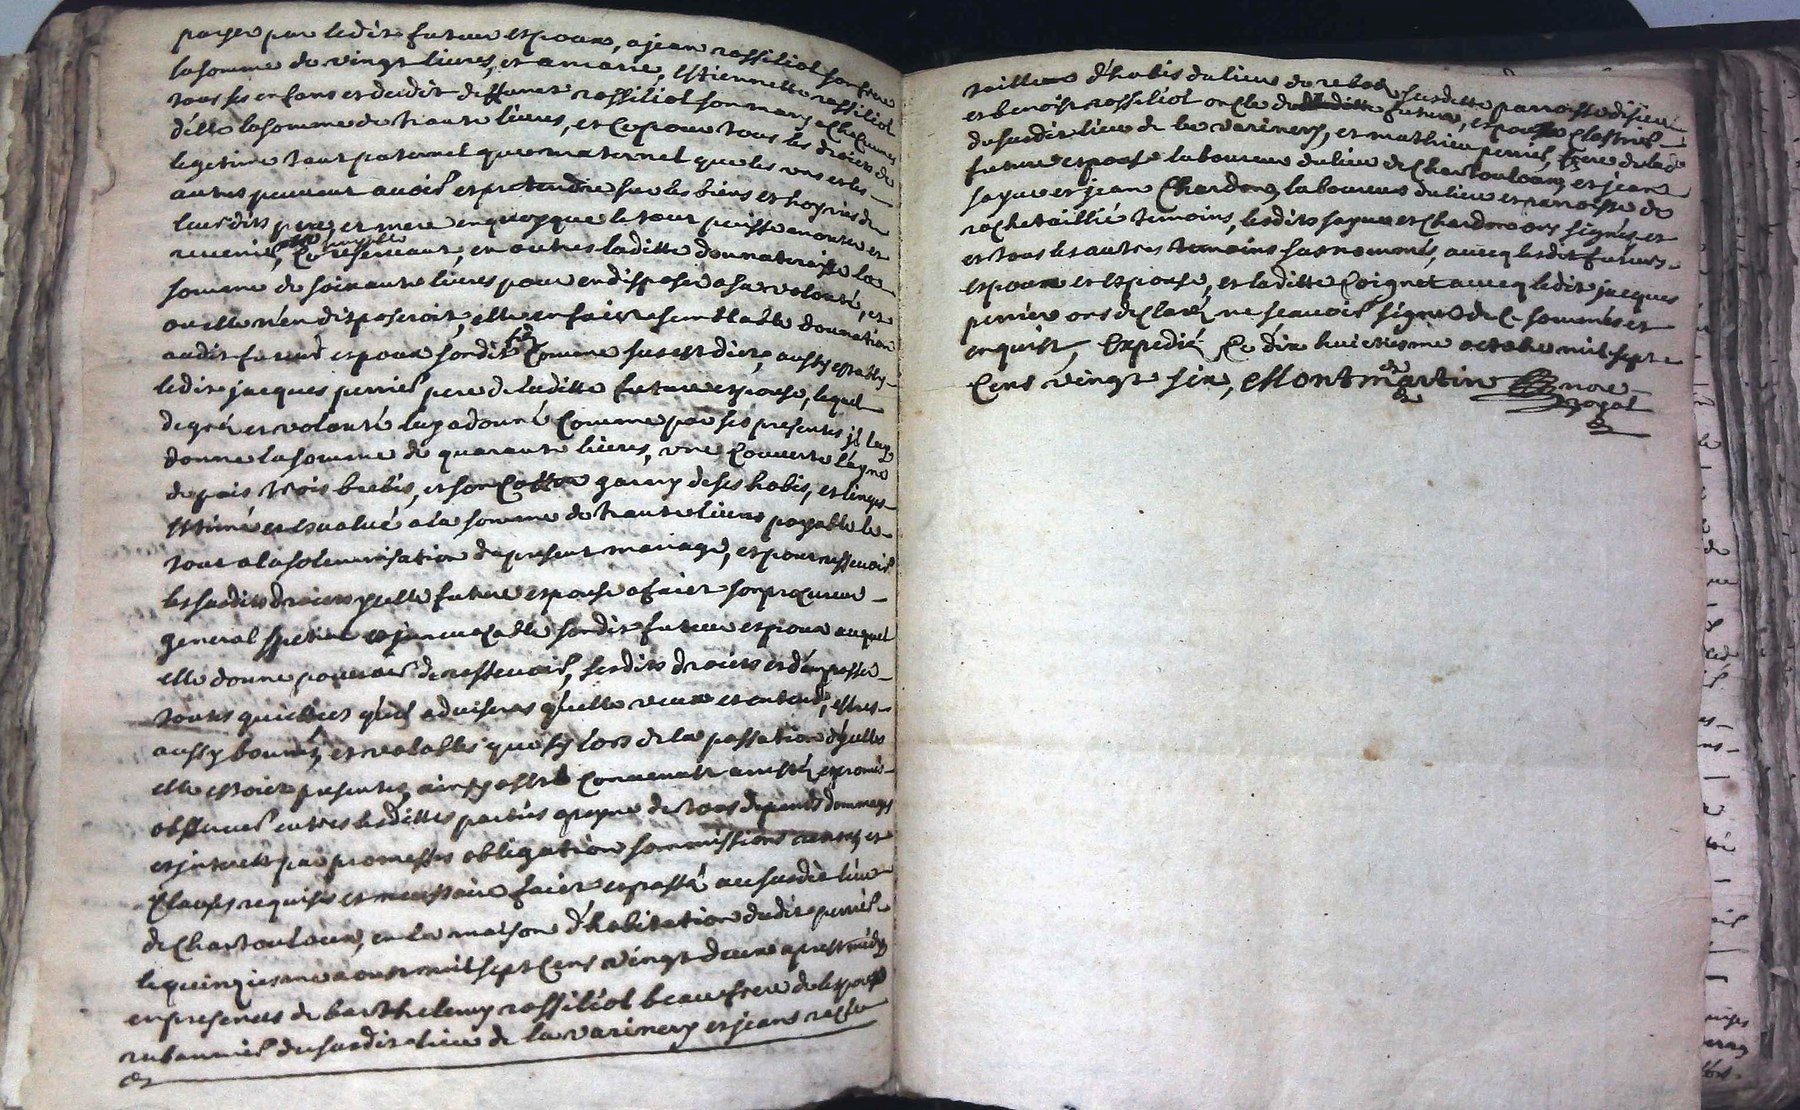 payer par ledit futur espoux, a jean rossiliol son frere
la somme de vingt livres, et a marie, Estiennette rossiliol
tous ses enfans et dudit deffunct rossiliol son mary a chacunes
d'elle la somme de trante livres, et ce pour tous les droicts de
legitime tant paternel que maternel que les uns et les
autres peuvent avoir et pretendre sur les biens et hoyries de
leursdits pere et mere en quoy que le tout puisse monter et
revenir, se reservant, en outres laditte donnatrisse la
somme de soixante livres pour en disposer a sa volonté, et
ou elle n'en disposeroit, elle en faict semblable donnation
audit futur espoux sondit fils Comme sus est dict, aussy estably
ledit jacques perrier pere de laditte future espouse, lequel
de gré et volonté luy a donné Comme par ses presentes jl luy
donne la somme de quarante livres, une Couverte legne
de pais trois brebis, et son Coffre garny de ses habis, et linges
Estimé et esvalué a la somme de trante livres payable le
tout a la solemnisation du present mariage, et pour ressevoir
les susdits droicts ycelle future espouse a faict son procureur
general special et jrrevocable sondit futur espoux auquel
elle donne pouvoir de ressevoir, sesdits droicts et d'en passer
toutes quictances qu'il advisera qu'elle veux et entend, estres
aussy bonnes, et valables que sy lors de la passation d'ycelles
elle estoict presente, ainsy a esté Convenu arresté et promis
observer entres lesdittes parties a peyne de tous depends dommages
et jnterests par promesses obligations sommissions rentes et
Clauses requises et necessaire faict et passé au susdit lieu
de Chartouloux, en la maison d'habitation dudit perrier
le quinziesme aoust mil sept Cens vingt deux apres midy
en presences de barthelemy rossiliol beaufrere de lespoux
rubannier du susdit lieu de la varinery et jean
tailleur d'habis du lieu de susditte parroisse
et benoist rossiliol oncle de future, espouse
du susdit lieu de la varinery, et mathieu perrier, frere de lad
future espouse laboureur du lieu de Chartouloux et jean
sayue et jean Chardon laboureurs du lieu et parroisse de
rochetaillié temoins, lesdits sayue et Chardon ons signés, et
et tous les autres temoins susnommés, avecq lesdit futurs
espoux et espouse, et laditte Coignet avecq ledit jacques
perrier ons declaré ne sçavoir signer de Ce sommés et
enquist, Expedié Ce dix huictiesme octobre mil sept
Cens vingt six, Montmartin nore
royal